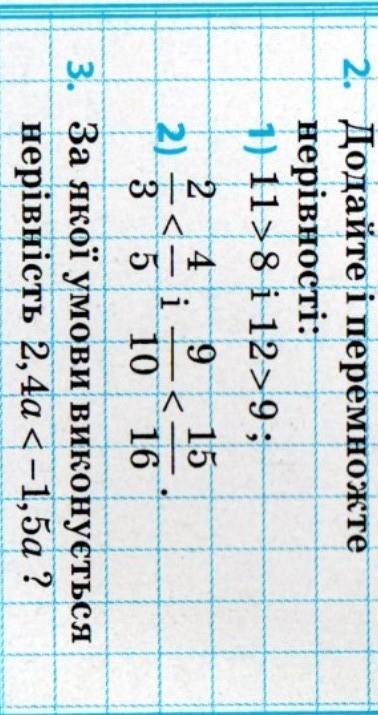 2. Додайте і перемножте
нерівності:
1) 11 > 8 і 12 > 9;
2) 2/3 < 4/5 і 9/10 < 15/16.
3. За якої умови виконується
нерівність 2,4a < –1,5a?